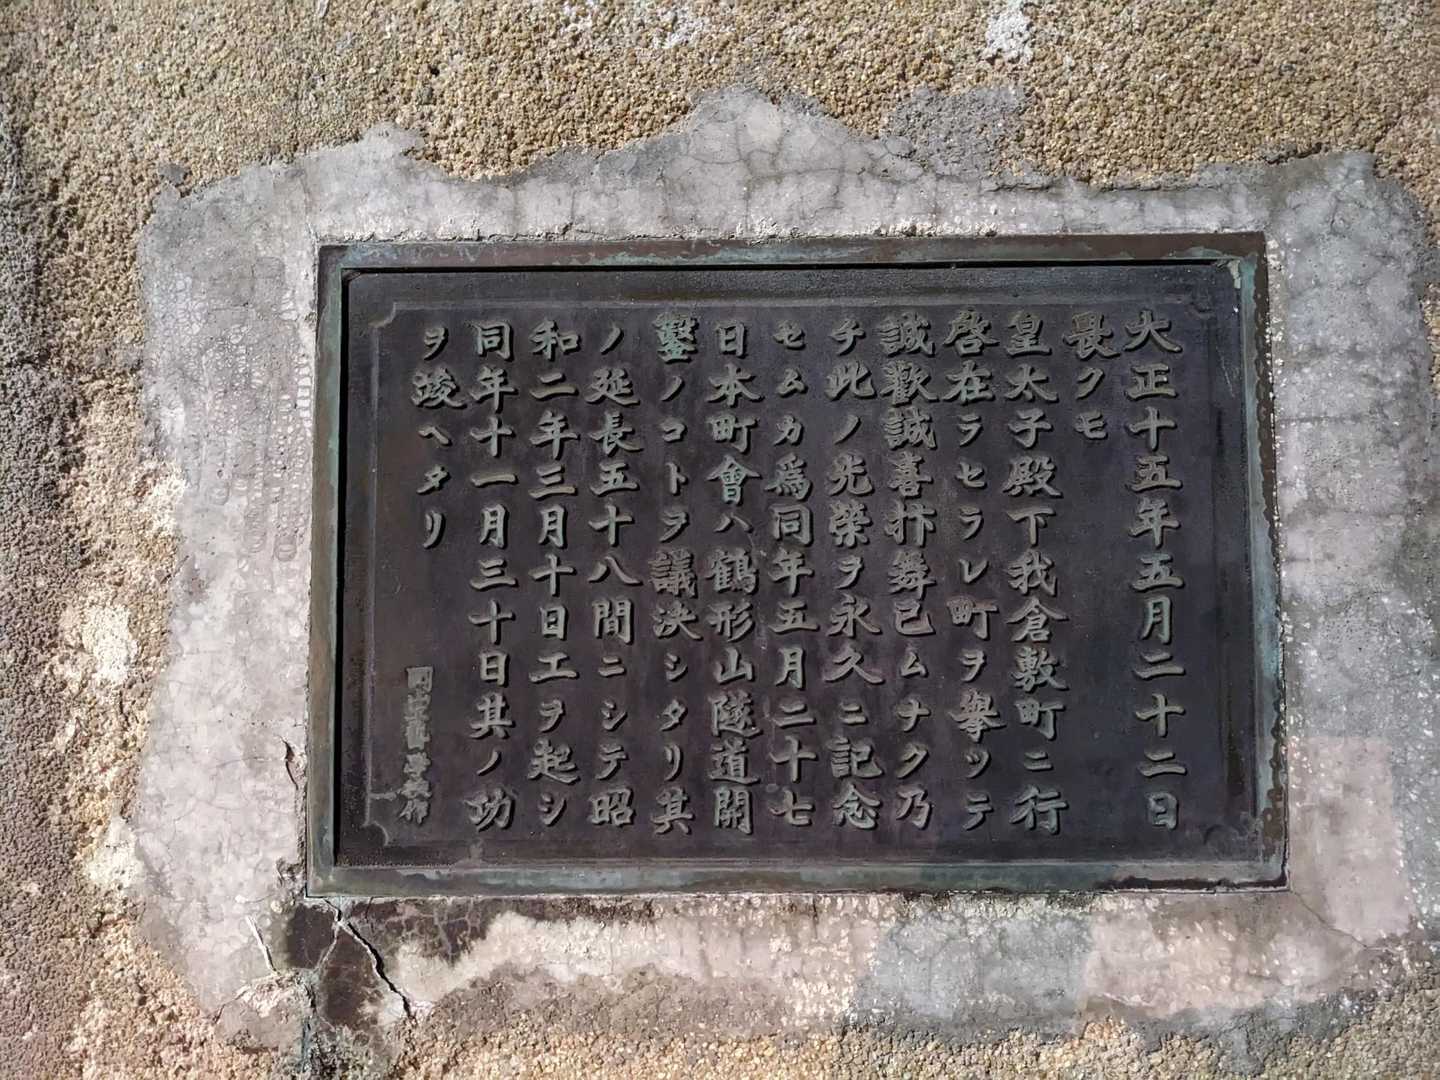 大正十五年五月二十二日
畏クモ
皇太子殿下我倉敷町ニ行
啓在ラセラレ町ヲ擧ツテ
誠歡誠喜抃舞已ムナク乃
チ此ノ光榮ヲ永久ニ記念
セムカ爲同年五月二十七
日本町會ハ鶴形山隧道開
鑿ノコトヲ議決シタリ其
ノ延長五十八間ニシテ昭
和二年三月十日工ヲ起シ
同年十一月三十日其ノ功
ヲ竣ヘタリ